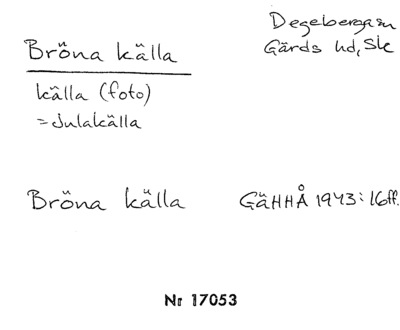 Bröna källa
Degeberga sn
Gärds hd, Sk
källa (foto)
= Julakälla
Bröna källa
GäHHÅ 1943: 16ff.
Nr 17053